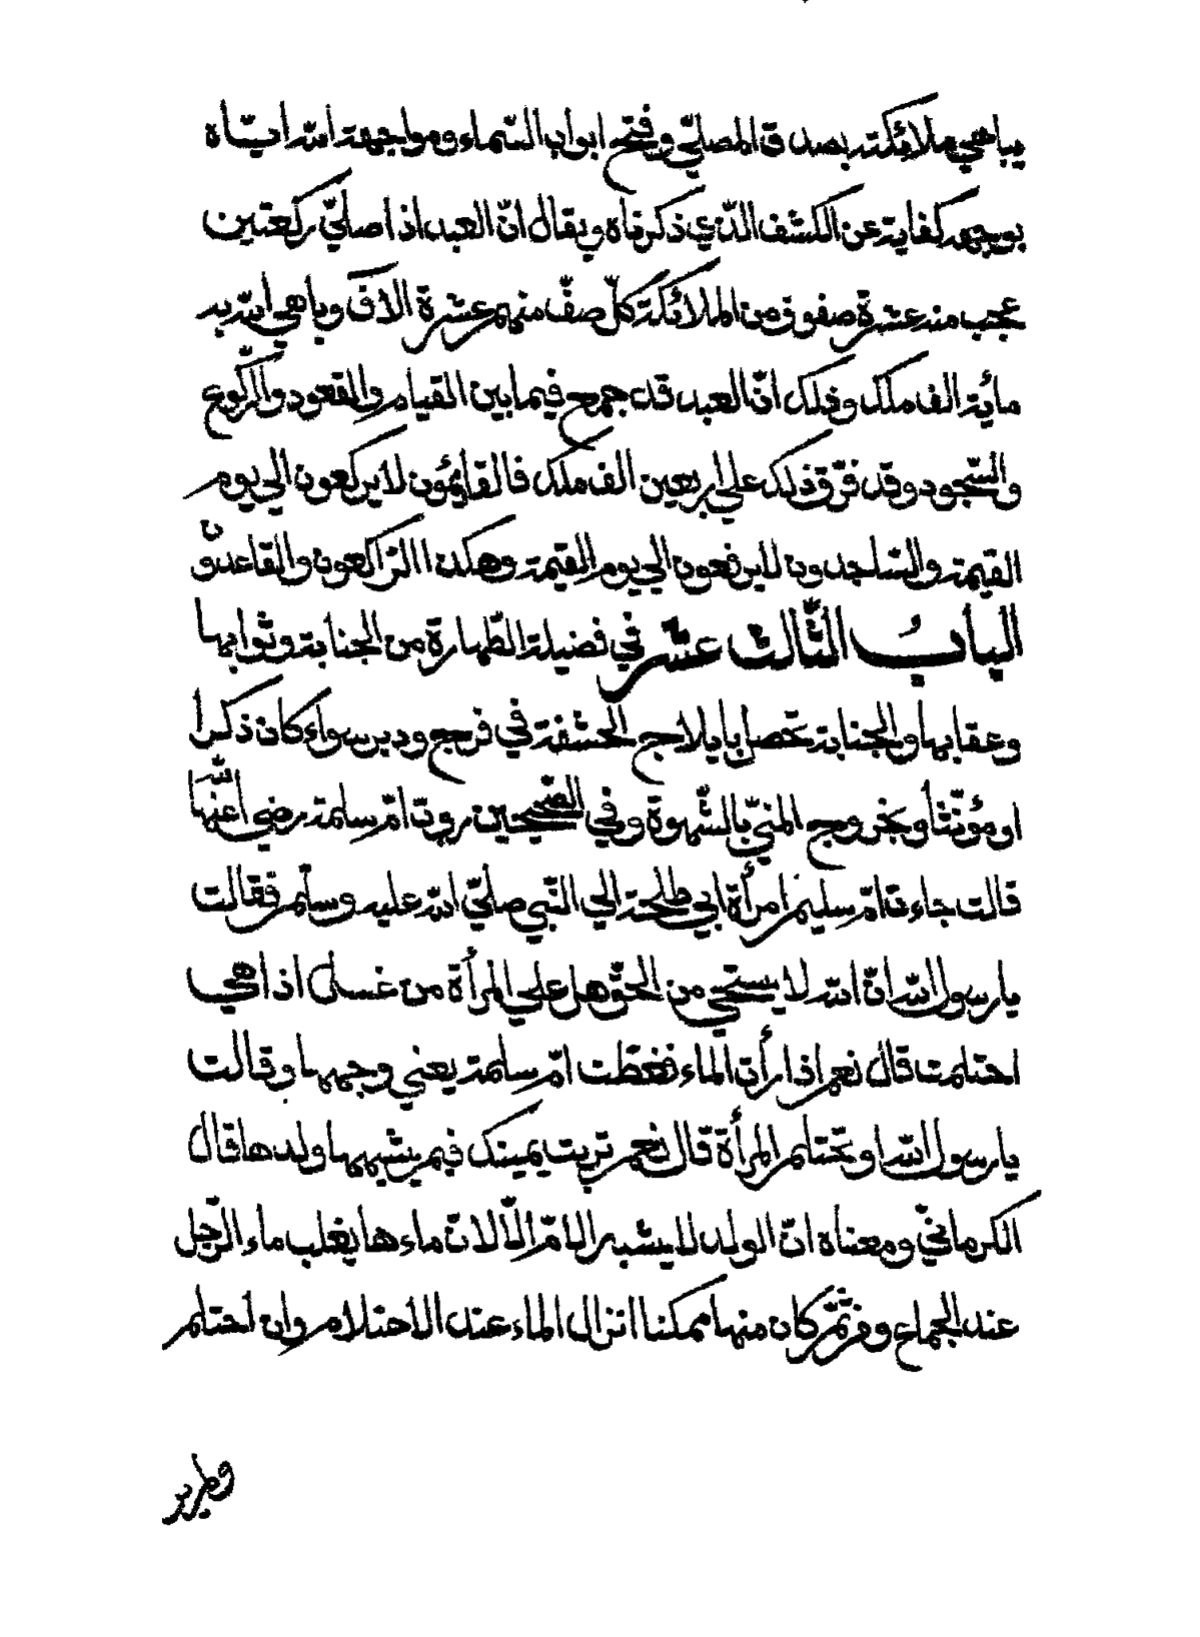 يباهي ملائكته بصدق المصلّي وفتح ابواب السّماء ومواجهة الله ايّاه
بوجهه كفاية عن الكشف الذّي ذكرناه ويقال انّ العبد اذا صلّي ركعتين
عجب منه عشرة صفوف من الملائكة كلّ صفّ منهم عشرة الاف وباهي الله به
مائة الف ملك وذلك انّ العبد قد جمع فيما بين القيام والقعود والرّكوع
والسّجود وقد فرّق ذلك علي اربعين الف ملك فالقائمون لا يركعون الي يوم
القيمة والسّاجدون لا يرفعون الي يوم القيمة وهكذا الرّاكعون والقاعدون
الباب الثّالث عشر في فضيلة الطّهارة من الجنابة وثوابها
وعقابها والجنابة تحصل بايلاج الحشفة في فرج ودبر سواء كان ذكرا
او مؤنّثا وبخروج المنيّ بالشّهوة وفي الصّحيحين روت امّ سلمة رضي الله عنها
قالت جاءت امّ سليم امرأة ابي طلحة الي النّبي صلّي الله عليه وسلّم فقالت
يا رسول الله انّ الله لا يستحيي من الحقّ هل علي المرأة من غسل اذا هي
احتلمت قال نعم اذا رأت الماء فغطّت امّ سلمة يعني وجهها وقالت
يا رسول الله او تحتلم المرأة قال نعم تربت يمينك فبم يشبهها ولدها قال
الكرمانيّ ومعناه انّ الولد لا يشبه الامّ الّا لانّ ماءها يغلب ماء الرّجل
عند الجماع ومن ثمّ كان منها ممكنا انزال الماء عند الاحتلام وان احتلم